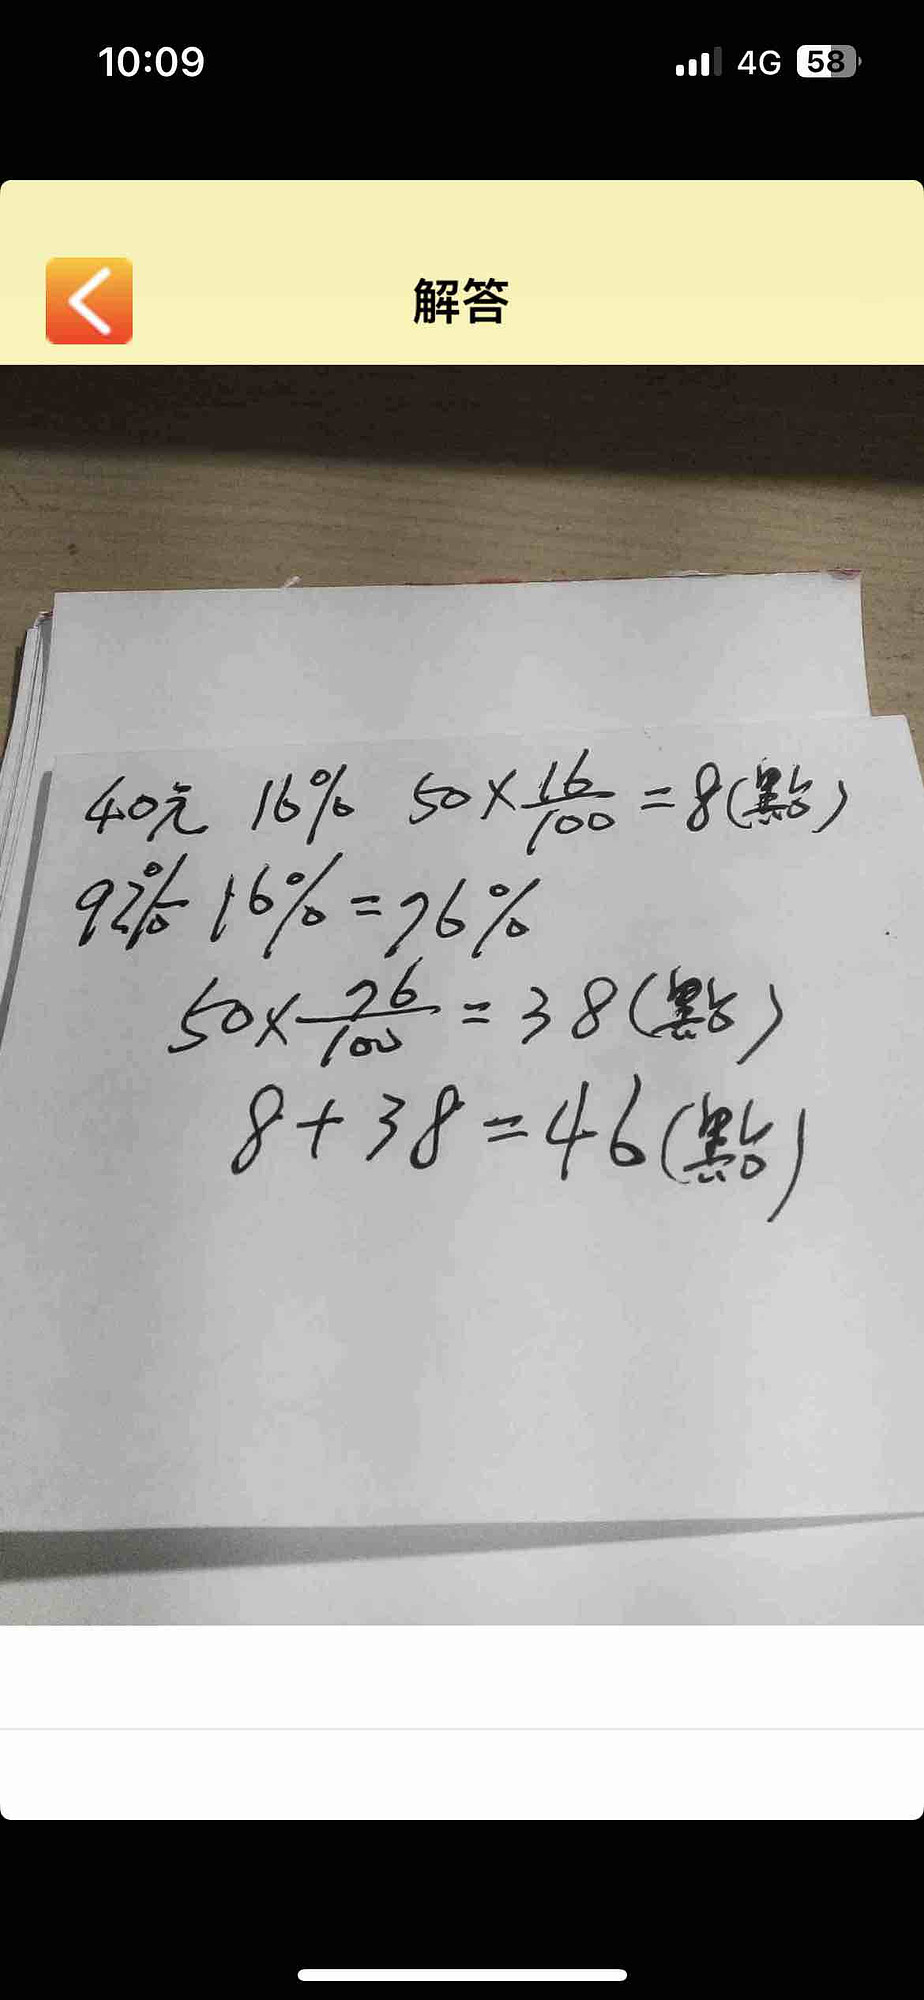 10:09 4G 58
解答
40元 16% 50×16/100=8(點)
92% 16%=76%
50×76/100=38(點)
8+38=46(點)